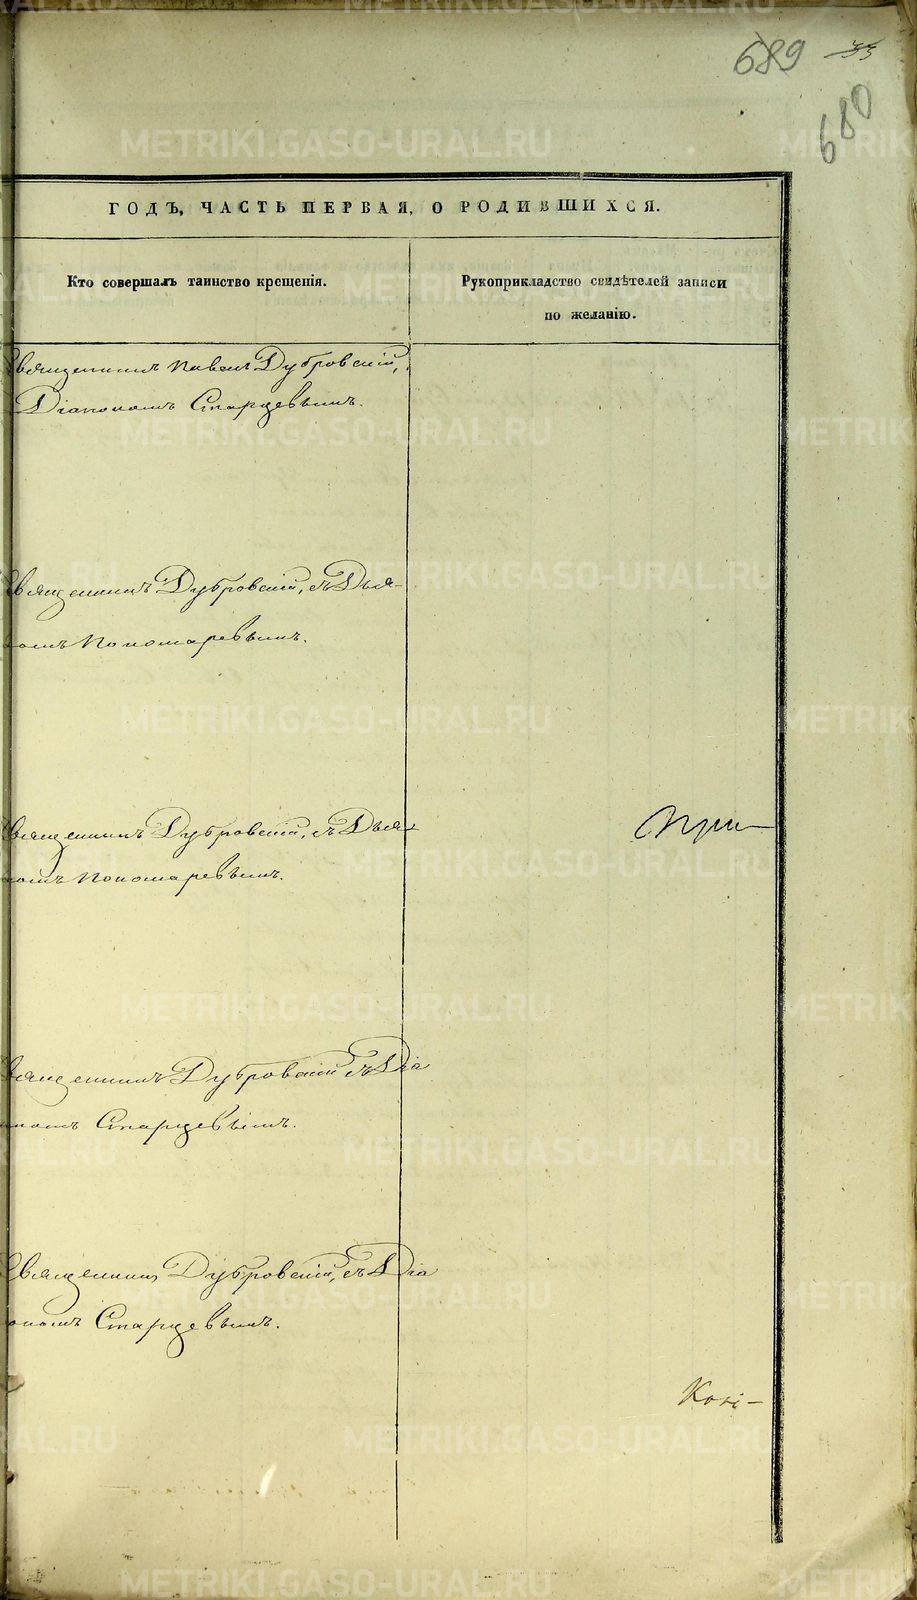 689 33
680
ГОДЪ, ЧАСТЬ ПЕРВАЯ, О РОДИВШИХСЯ.
Кто совершалъ таинство крещенія.
Рукоприкладство свидѣтелей записи
по желанію.
Священникъ Павелъ Дубровскій,
Діакономъ Старцевымъ.
Священникъ Дубровскій, съ Дья-
комъ Пономаревымъ.
Священникъ Дубровскій, съ Дья-
комъ Пономаревымъ.
При-
Священникъ Дубровскій съ Діа
кономъ Старцевымъ.
Священникъ Дубровскій, съ Діа
кономъ Старцевымъ.
Копі-
METRIKI.GASO-URAL.RU